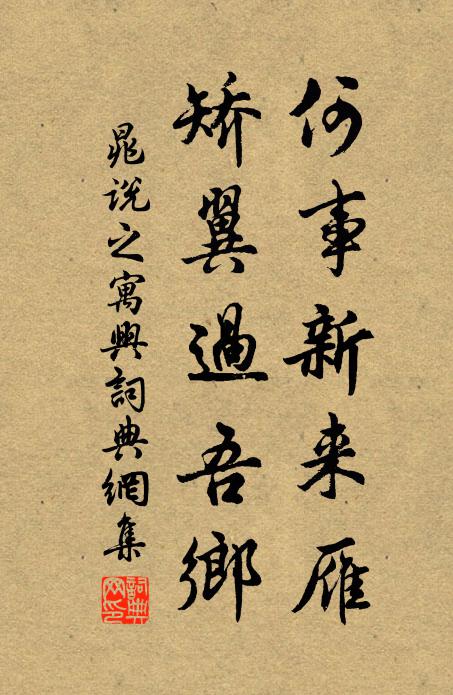 何事新来雁
矫翼過吾鄉
晁说之寓興詞典網集
詞典网印